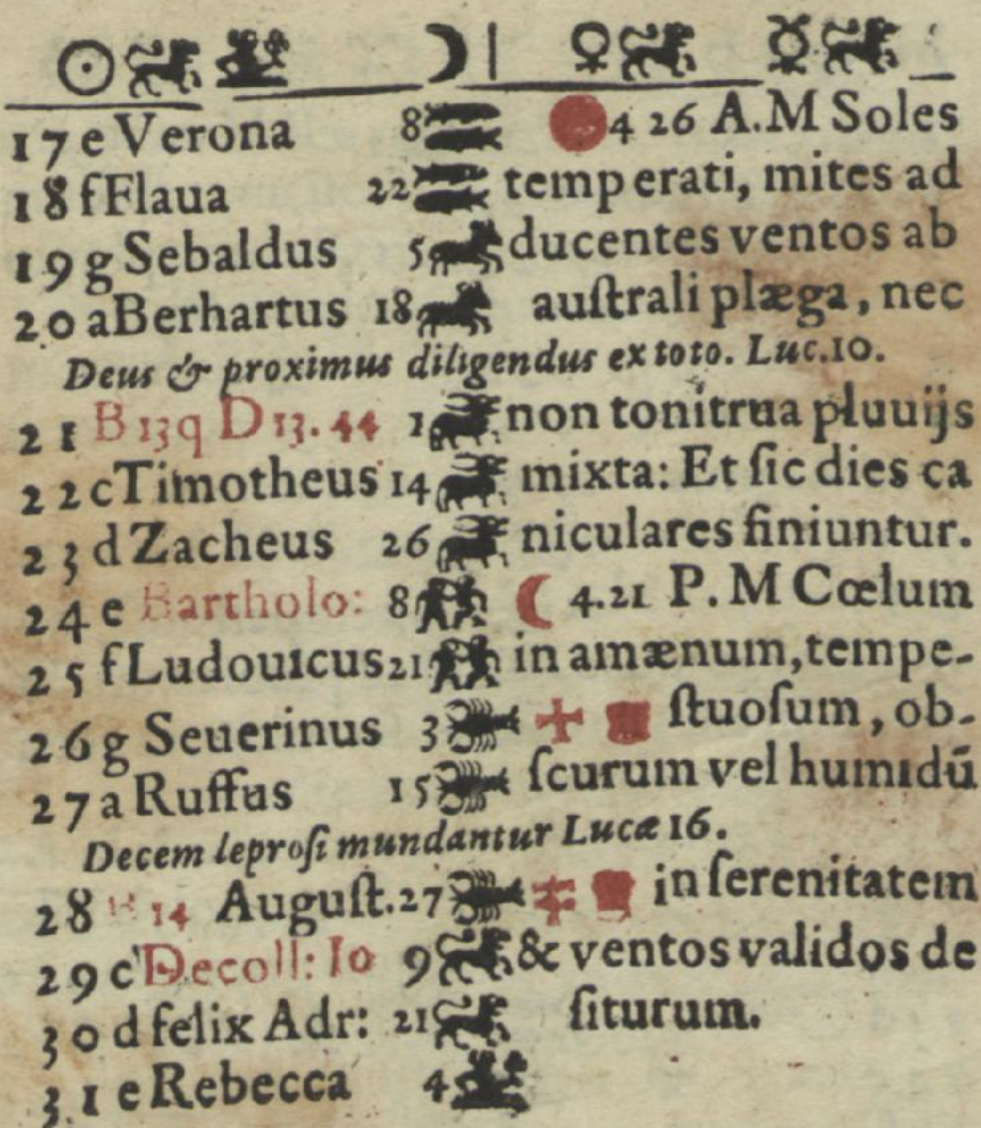 ☉ ♌ ♍ ☽ | ♀ ♌ ☿ ♌
17 e Verona 8 ♓ 4 26 A.M Soles
18 f Flaua 22 ♓ temperati, mites ad
19 g Sebaldus 5 ♈ ducentes ventos ab
20 a Berhartus 18 ♈ auſtrali plæga, nec
Deus & proximus diligendus ex toto. Luc.10.
21 B 13q D 13.44 1 ♉ non tonitrua pluuijs
22 c Timotheus 14 ♉ mixta: Et ſic dies ca
23 d Zacheus 26 ♉ niculares finiuntur.
24 e Bartholo: 8 ♊ ☾ 4.21 P.M Cœlum
25 f Ludouicus 21 ♊ in amænum, tempe-
26 g Seuerinus 3 ♋ ſtuoſum, ob-
27 a Ruffus 15 ♋ ſcurum vel humidū
Decem leproſi mundantur Lucæ 16.
28 B 14 Auguſt. 27 ♋ in ſerenitatem
29 c Decoll: Io 9 ♌ & ventos validos de
30 d felix Adr: 21 ♌ ſiturum.
31 e Rebecca 4 ♍